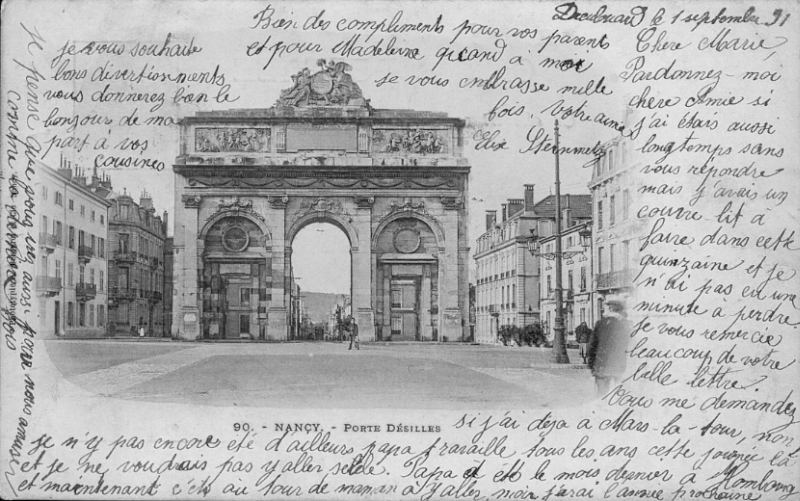 le 1 septembre
Chere Marrie,
Pardonnez-moi
chère Amie si
j'ai étais aussi
longtemps sans
vous répondre
mais j'avais un
couvre-lit à
faire dans cette
quinzaine et je
n'ai pas eu une
minute à perdre.
Je vous remercie
beaucoup de votre
belle lettre.
Vous me demandez
si j'ai déja à Mars-la-tour, non
je n'y pas encore été d'ailleurs papa travaille tous les ans cette journée là
et je ne voudrais pas y aller seule. Papa a été le mois dernier à
et maintenant c'ets au tour de maman à y aller, moi j'irai l'année prochaine
je pense que pour vous aussi, pour nous amuser
comme
je vous souhaite
bons divertionnents
vous donnerez bien le
bonjour de ma
part à vos
cousines
Bien des compliments pour vos parents
et pour Madeleine quand à moi
je vous embrasse mille
fois, Votre amie
Elise Steinmetz
90. - NANCY. - PORTE DÉSILLES